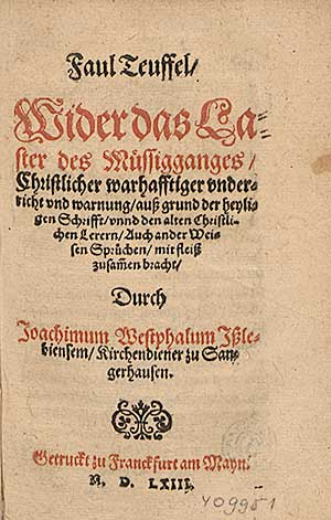 Faul Teuffel/
Wider das La-
ster des Müssigganges/
Christlicher warhafftiger vnder-
richt vnd warnung/ auß grund der heyli-
gen Schrifft/ vnnd den alten Christli-
chen Lerern/ Auch ander Wei-
sen Sprüchen/ mit fleiß
zusam̃en bracht/
Durch
Joachimum Westphalum Jßle-
biensem/ Kirchendiener zu San-
gerhausen.
Getruckt zu Franckfurt am Mayn.
M. D. LXIII.
409951